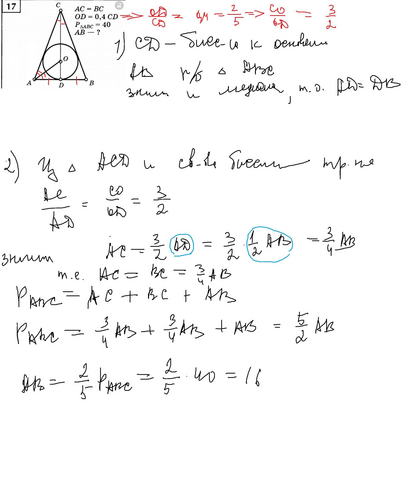 17
C
AC = BC
OD = 0,4 CD
P△ABC = 40
AB — ?
O
A D B
=> OD/CD = 0,4 = 2/5 => CO/OD = 3/2
1) CD – бисс-са к основан
AB р/б △ ABC
значит и медиана, т.е. AD = DB
2) Из △ ACD и св-ва биссект
AC/AD = CO/OD = 3/2
значит AC = 3/2 AD = 3/2 · 1/2 AB = 3/4 AB
т.е. AC = BC = 3/4 AB
P_ABC = AC + BC + AB
P_ABC = 3/4 AB + 3/4 AB + AB = 5/2 AB
AB = 2/5 P_ABC = 2/5 · 40 = 16